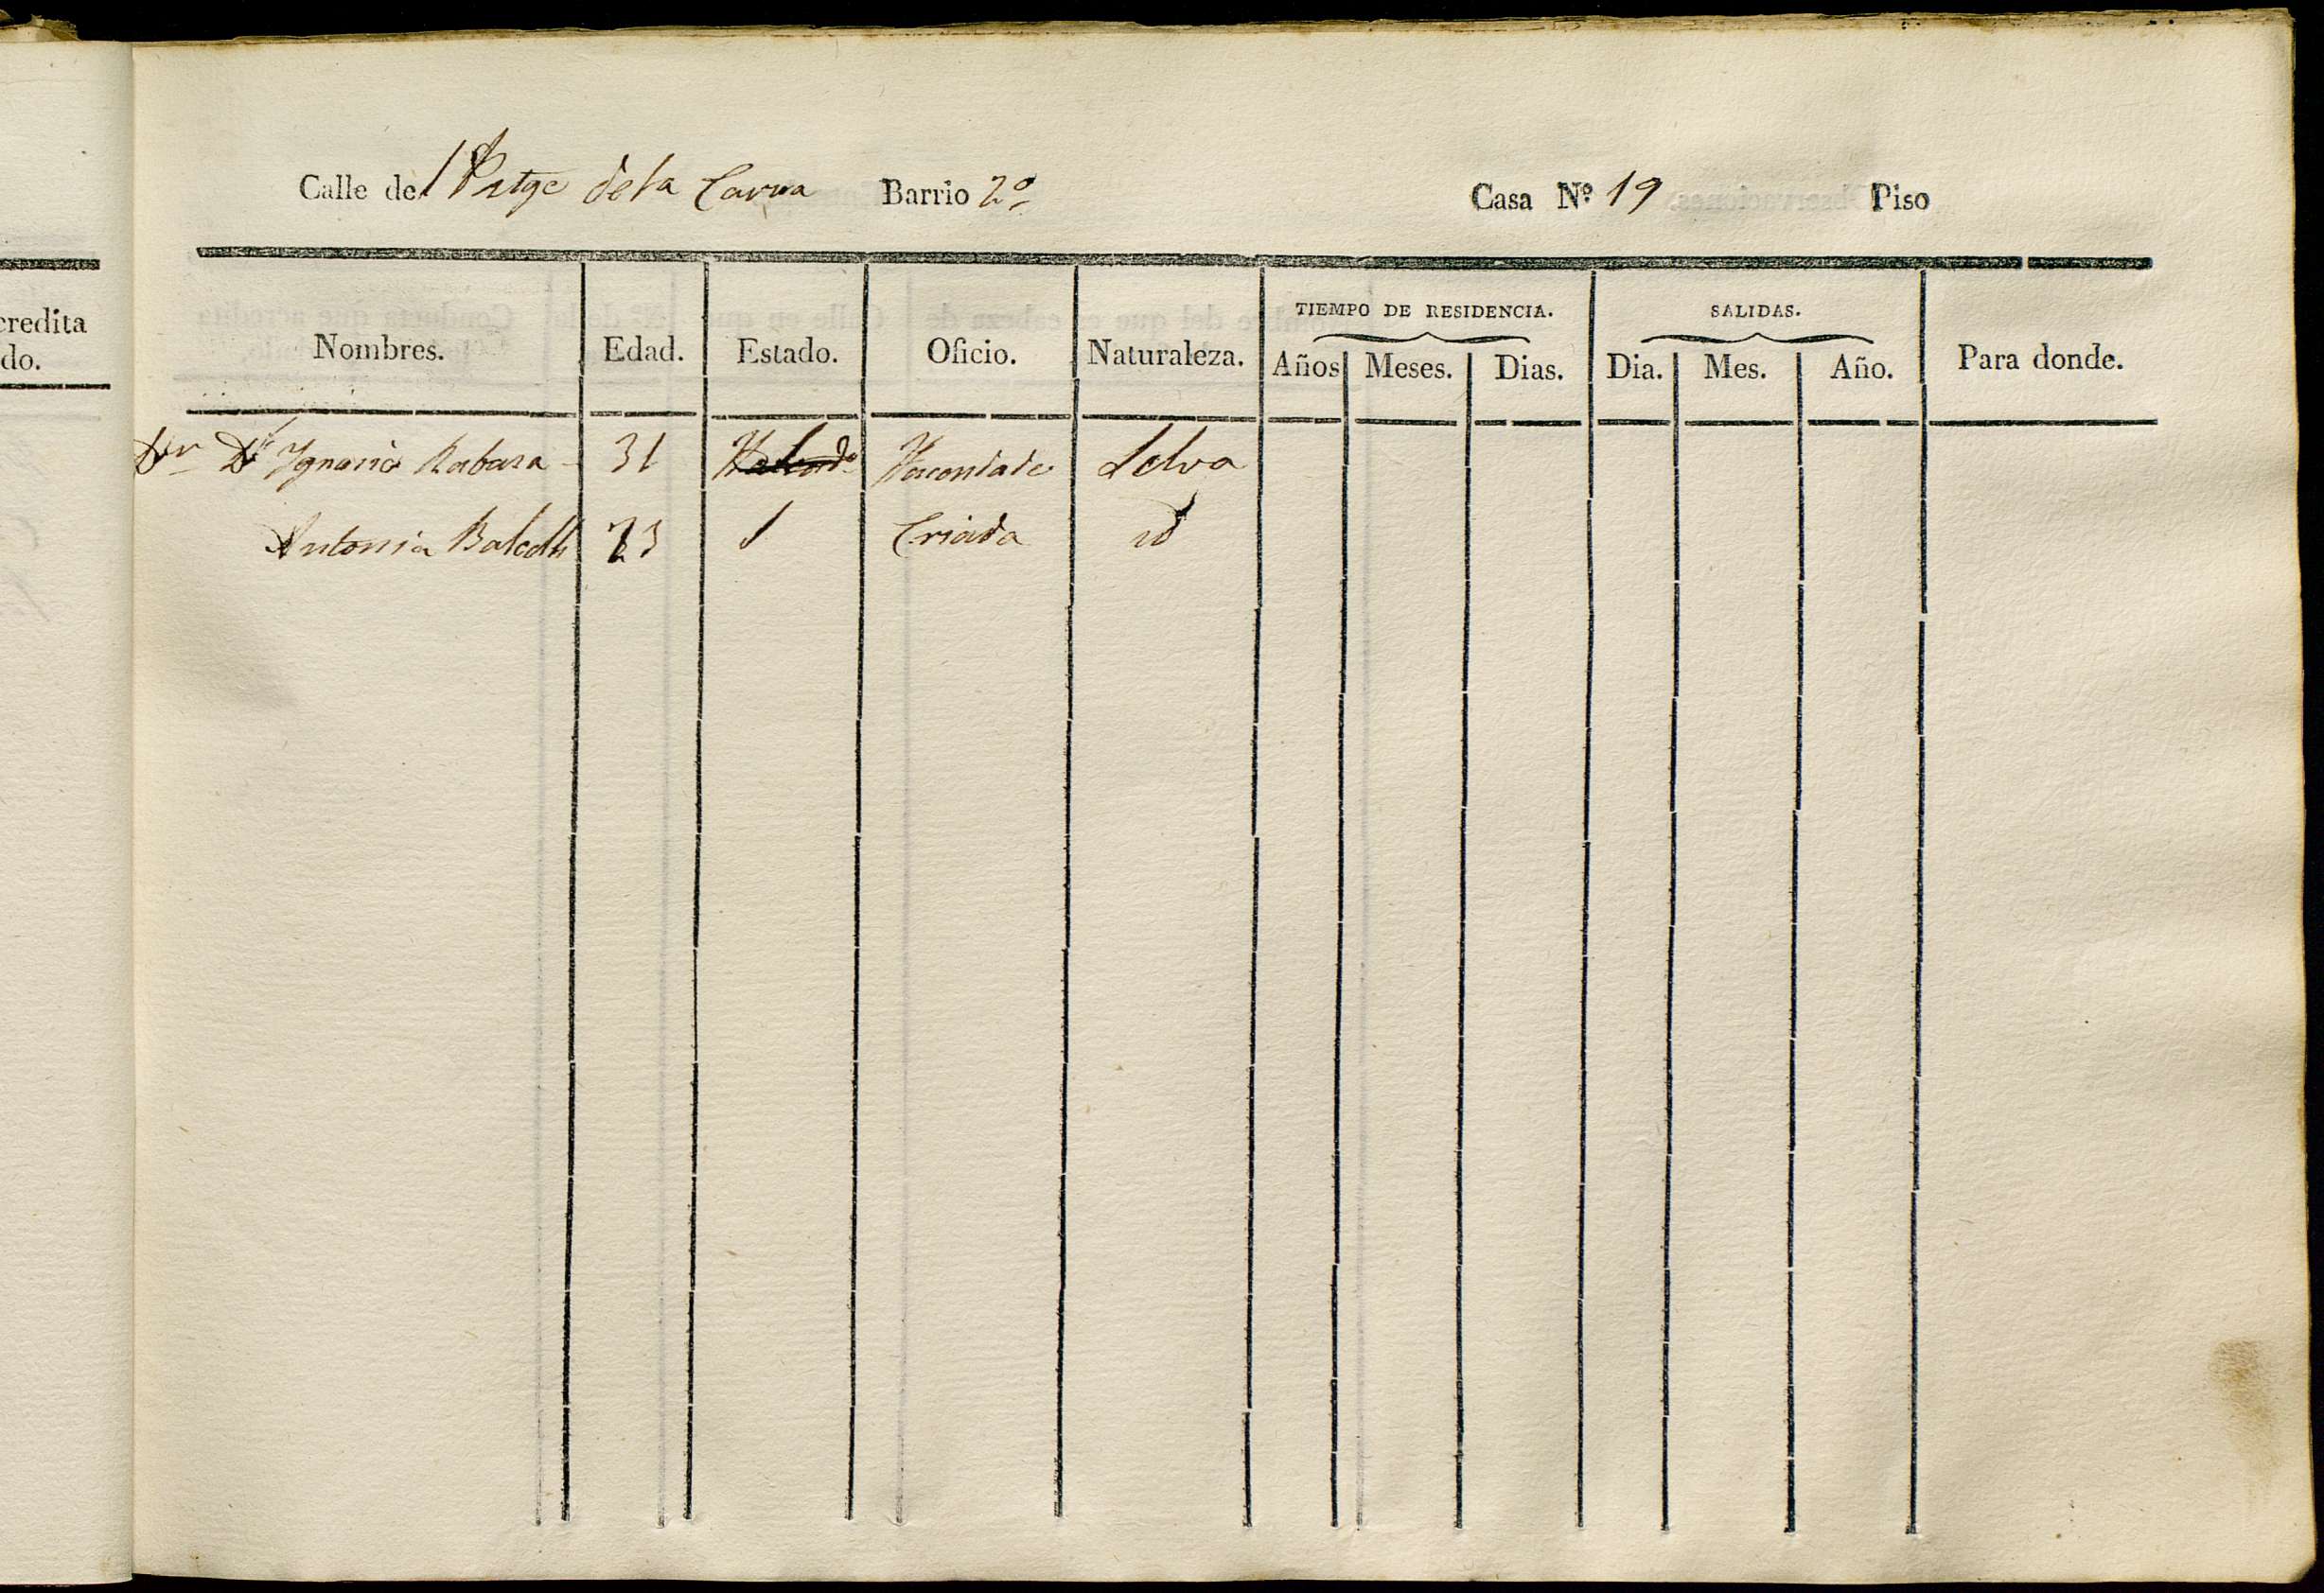 Calle del Patge de la Carna Barrio 2º Casa Nº 19 Piso
credita
do.
TIEMPO DE RESIDENCIA. SALIDAS.
Nombres. Edad. Estado. Oficio. Naturaleza. Años Meses. Dias. Dia. Mes. Año. Para donde.
Dr Dn Ygnacio Rabasa 31 Selva
Antonia Balcells 23 S Criada id